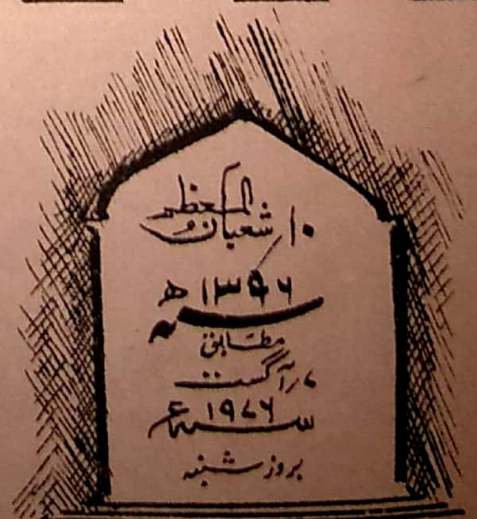 ۱۰/ شعبان المعظم
سنہ ۱۳۹۶ھ
مطابق
۷/ آگست
سنہ ۱۹۷۶ء
بروز شنبہ